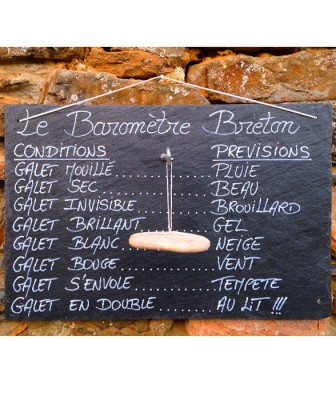 Le Baromètre Breton
CONDITIONS PREVISIONS
GALET MOUILLÉ......... PLUIE
GALET SEC............. BEAU
GALET INVISIBLE....... BROUILLARD
GALET BRILLANT........ GEL
GALET BLANC........... NEIGE
GALET BOUGE........... VENT
GALET S'ENVOLE........ TEMPETE
GALET EN DOUBLE....... AU LIT !!!